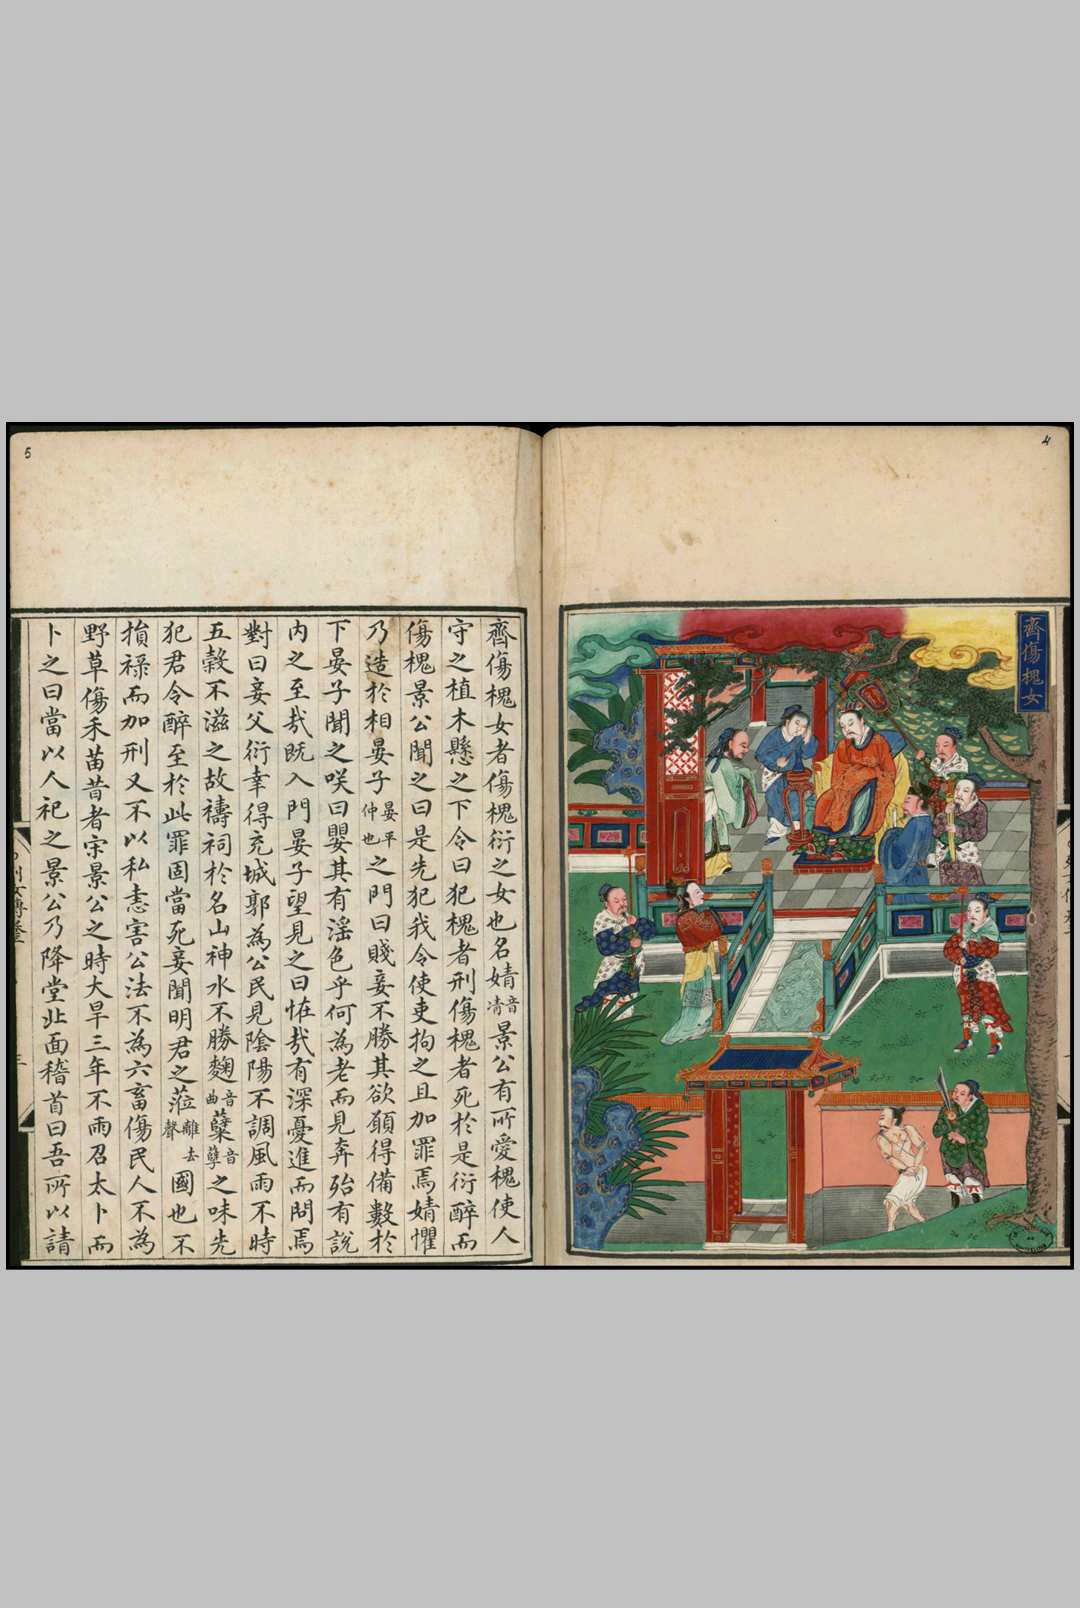 4
齊傷槐女
5
齊傷槐女者傷槐衍之女也名婧音清景公有所愛槐使人
守之植木懸之下令曰犯槐者刑傷槐者死於是衍醉而
傷槐景公聞之曰是先犯我令使吏拘之且加罪焉婧懼
乃造於相晏子晏平仲也之門曰賤妾不勝其欲願得備數於
下晏子聞之咲曰嬰其有滛色乎何為老而見奔殆有說
内之至㢤既入門晏子望見之曰恠㢤有深憂進而問焉
對曰妾父衍幸得充城郭為公民見陰陽不調風雨不時
五糓不滋之故禱祠於名山神水不勝麴音曲糵音孽之味先
犯君令醉至於此罪固當死妾聞明君之蒞離去聲國也不
損禄而加刑又不以私恚害公法不為六畜傷民人不為
野草傷禾苗昔者宋景公之時大旱三年不雨召太卜而
卜之曰當以人祀之景公乃降堂北面稽首曰吾所以請